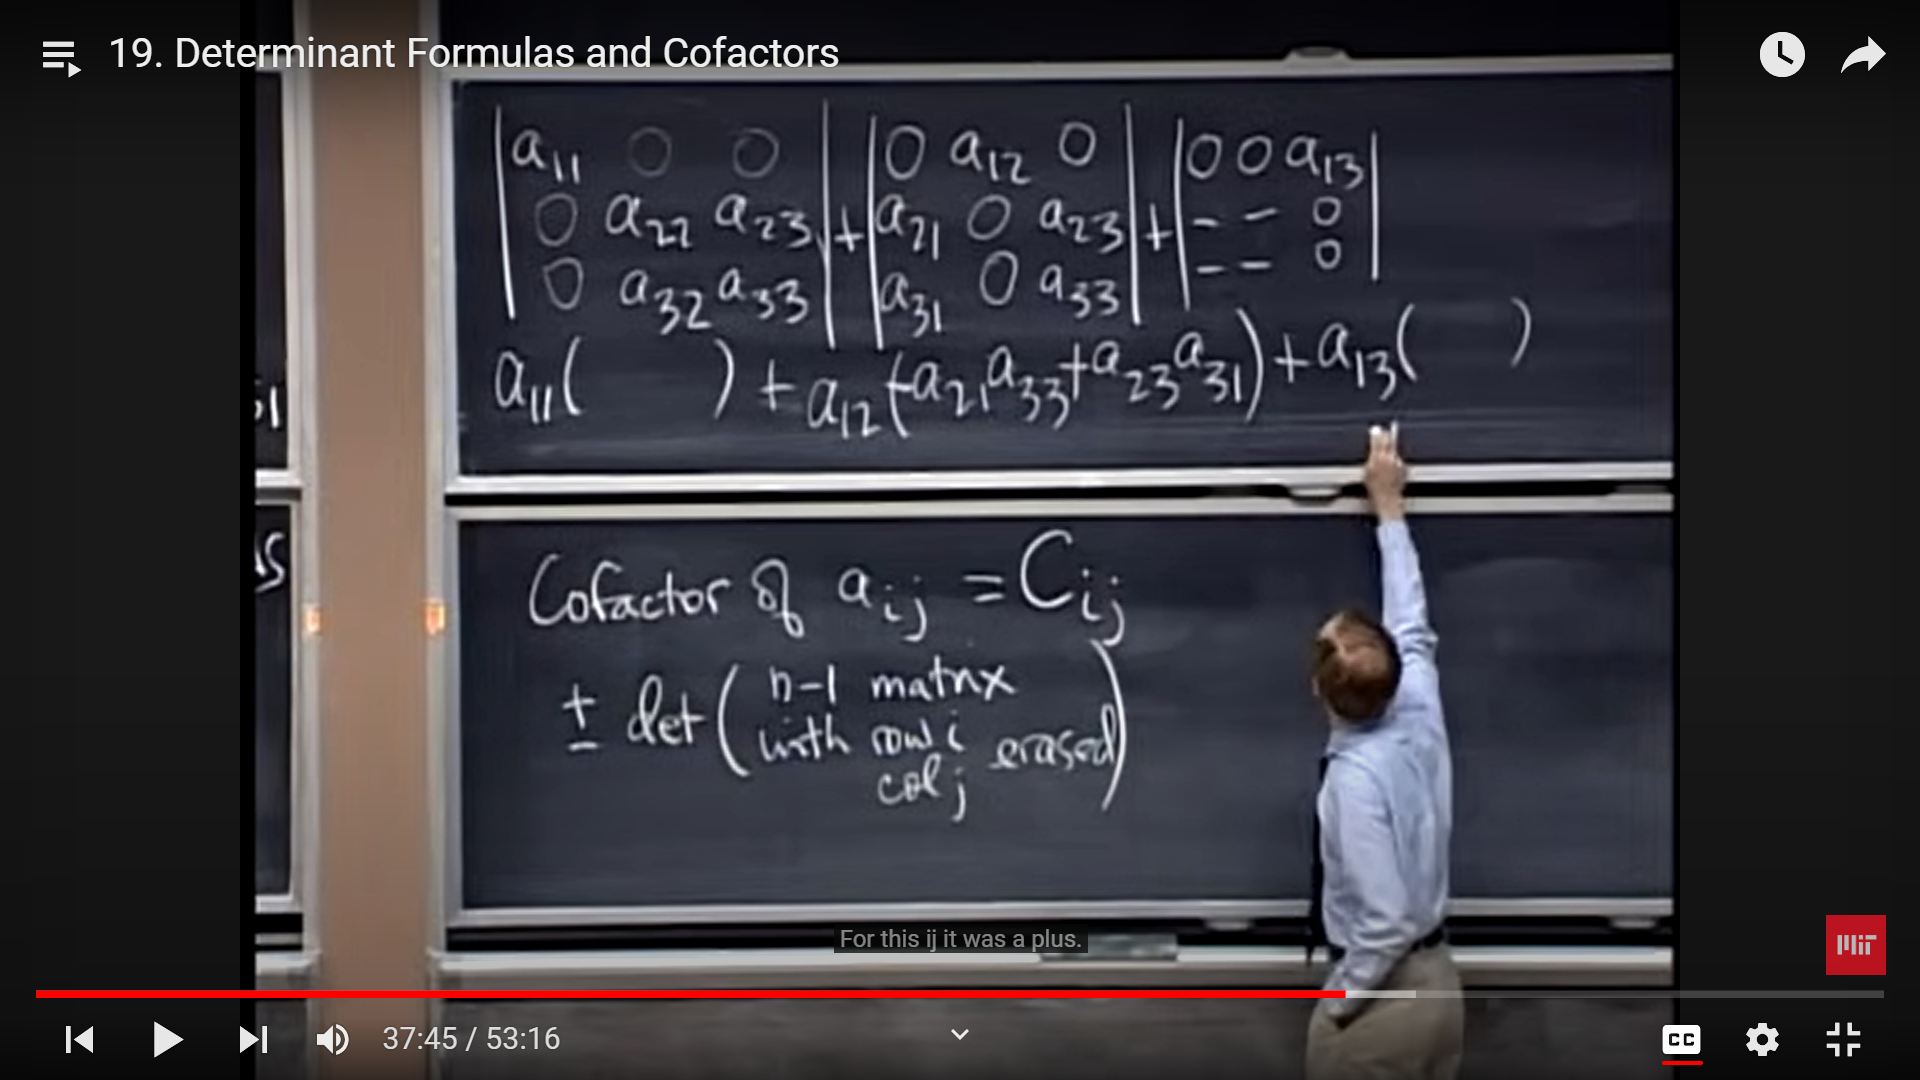 19. Determinant Formulas and Cofactors
| a11 0 0 | + | 0 a12 0 | + | 0 0 a13 |
| 0 a22 a23 | + | a21 0 a23 | + | - - 0 |
| 0 a32 a33 | | a31 0 a33 | | - - 0 |
a11( ) + a12(-a21a33+a23a31) + a13( )
Cofactor of aij = Cij
± det( n-1 matrix
with row i erased)
col j
For this ij it was a plus.
MIT
37:45 / 53:16
CC